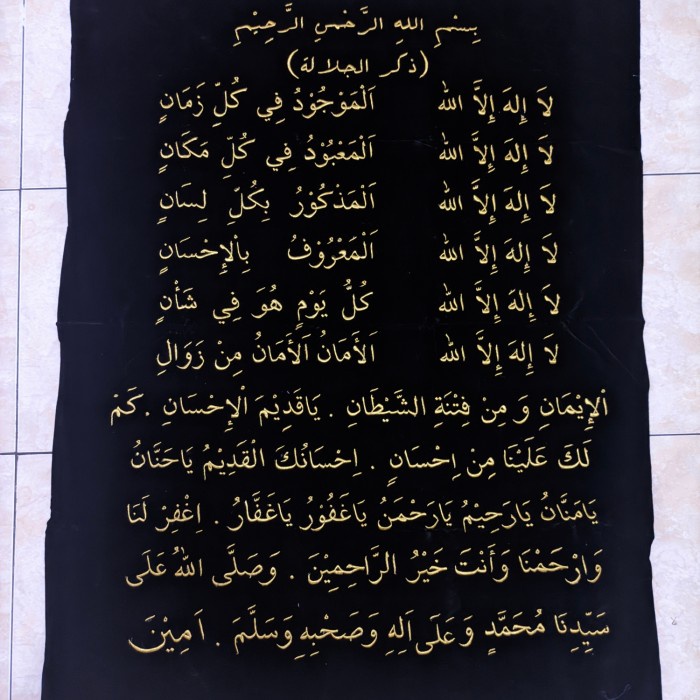 بِسْمِ اللهِ الرَّحْمٰنِ الرَّحِيْمِ
(ذكر الجلالة)
لَا إِلهَ إِلاَّ الله اَلْمَوْجُوْدُ فِي كُلِّ زَمَانٍ
لَا إِلهَ إِلاَّ الله اَلْمَعْبُوْدُ فِي كُلِّ مَكَانٍ
لَا إِلهَ إِلاَّ الله اَلْمَذْكُوْرُ بِكُلِّ لِسَانٍ
لَا إِلهَ إِلاَّ الله اَلْمَعْرُوْفُ بِاْلإِحْسَانِ
لَا إِلهَ إِلاَّ الله كُلُّ يَوْمٍ هُوَ فِي شَأْنٍ
لَا إِلهَ إِلاَّ الله اَلأَمَانُ اَلأَمَانُ مِنْ زَوَالِ
اْلإِيْمَانِ وَ مِنْ فِتْنَةِ الشَّيْطَانِ . يَاقَدِيْمَ اْلإِحْسَانِ . كَمْ
لَكَ عَلَيْنَا مِنْ اِحْسَانٍ . اِحْسَانُكَ الْقَدِيْمُ يَاحَنَّانُ
يَامَنَّانُ يَارَحِيْمُ يَارَحْمَنُ يَاغَفُوْرُ يَاغَفَّارُ . اِغْفِرْ لَنَا
وَارْحَمْنَا وَأَنْتَ خَيْرُ الرَّاحِمِيْنَ . وَصَلَّى اللهُ عَلَى
سَيِّدِنَا مُحَمَّدٍ وَعَلَى اَلِهِ وَصَحْبِهِ وَسَلَّمَ . اَمِيْنَ